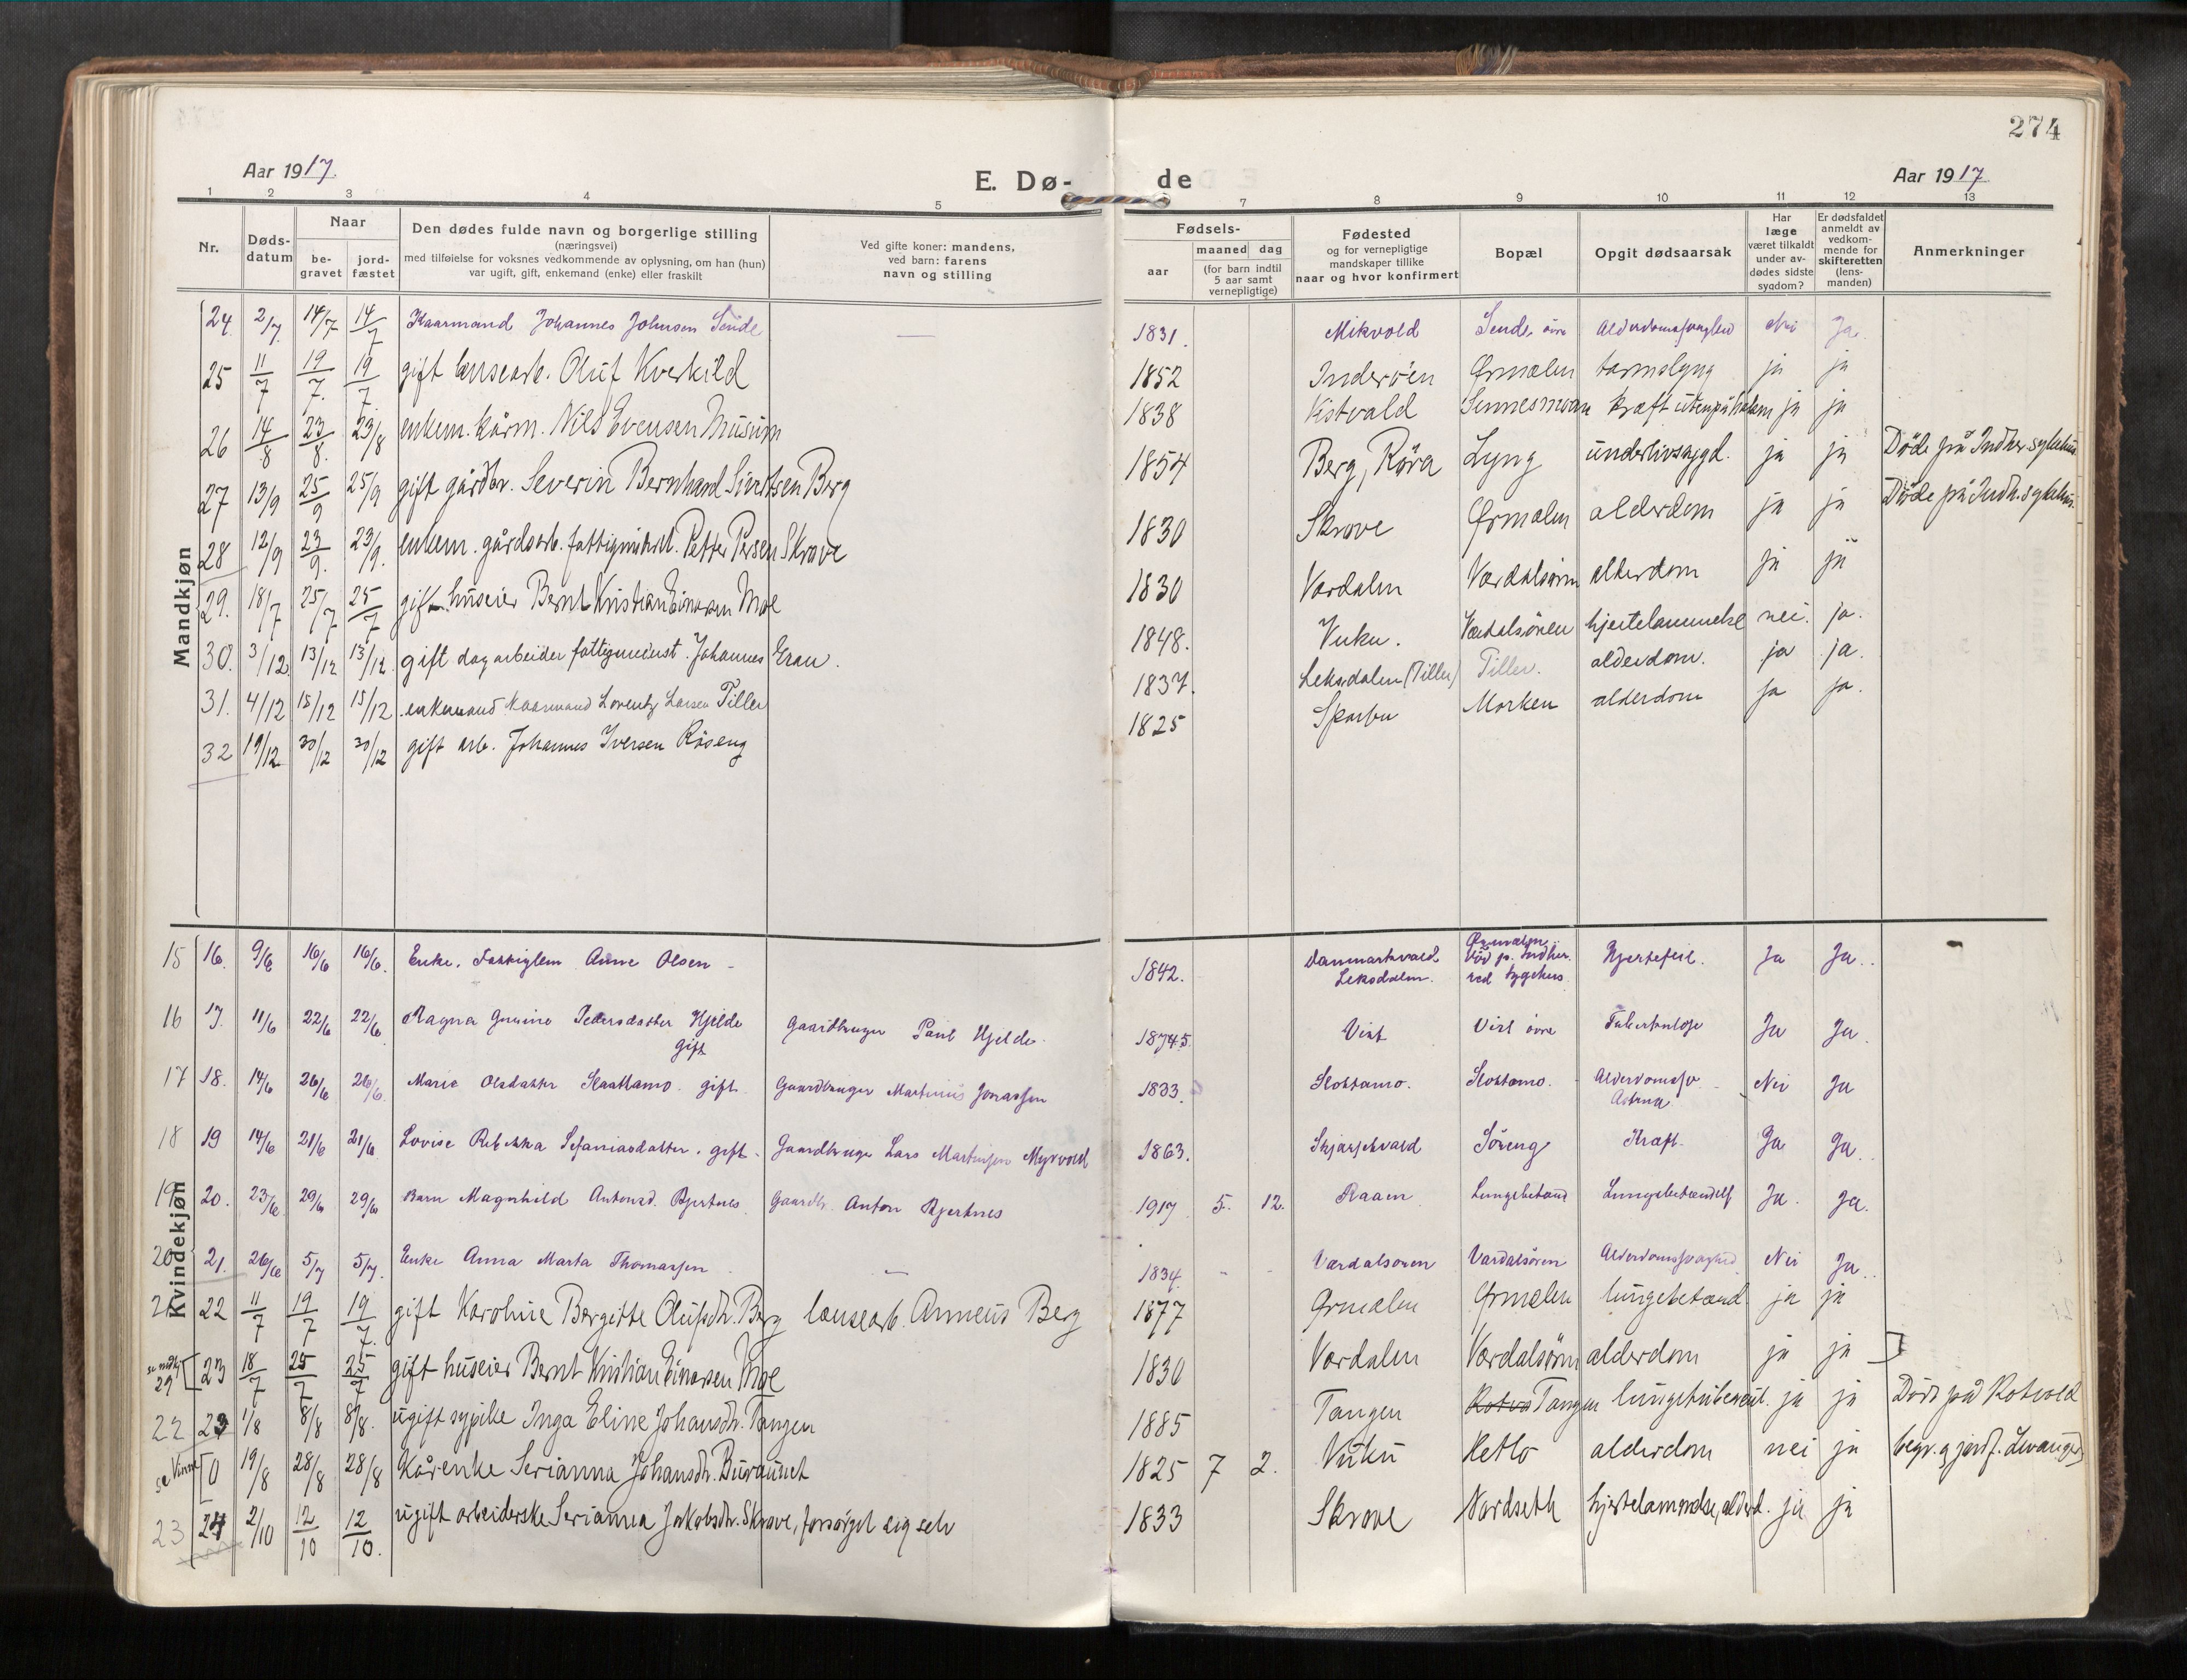 274
Aar 1917.
E. Dø-
de
Aar 1917
1 2 3 4 5 7 8 9 10 11 12 13
Nr.
Døds-
datum
Naar
be-
gravet
jord-
fæstet
Den dødes fulde navn og borgerlige stilling
(næringsvei)
med tilføielse for voksnes vedkommende av oplysning, om han (hun)
var ugift, gift, enkemand (enke) eller fraskilt
Ved gifte koner: mandens,
ved barn: farens
navn og stilling
Fødsels-
aar
maaned dag
(for barn indtil
5 aar samt
vernepligtige)
Fødested
og for vernepligtige
mandskaper tillike
naar og hvor konfirmert
Bopæl
Opgit dødsaarsak
Har
læge
været tilkaldt
under av-
dødes sidste
sygdom?
Er dødsfaldet
anmeldt av
vedkom-
mende for
skifteretten
(lens-
manden)
Anmerkninger
Mandkjøn
24. 2/7. 14/7 14/7 Kaarmand Johannes Johnsen Sende — 1831. Mikvold Sende øvre Nei Ja.
25 11/7 19/7. 19/7. gift lensearb. Oluf Kverkild 1852 Inderöen Ørmelen ja ja
26 14/8 23/8. 23/8 enkem. kårm. Nils Evensen Musum 1838 Kistvald Sennesmoan kræft ja ja
27 13/9 25/9 25/9 gift gårdbr. Severin Bernhard Sivertsen Berg 1854 Berg, Röra Lyng underlivssygd. ja ja Döde på Indher. sykehus
28 12/9 23/9. 23/9. enkem. gårdsarb. Petter Persen Skrove 1830 Skrove Ørmelen alderdom ja ja Döde på Indh. sykehus.
29. 18/7 25/7 25/7 gift huseier Bernt Kristian Einarsen Moe 1830 Værdalen Værdalsörn alderdom ja ja
30. 3/12 13/12 13/12. gift dagarbeider Johannes Eran. 1848. Vuku. Værdalsören hjertelammelse nei. ja.
31. 4/12 15/12 15/12 enkemand Kaarmand Lorentz Larsen Tiller 1837. Leksdalen (Tiller) Tiller. alderdom. ja ja.
32 19/12 30/12 30/12 gift arb. Johannes Iversen Röseng 1825 Sparbu Morken alderdom ja ja.
Kvindekjøn
15 16. 9/6 16/6 16/6. Enke. Fattiglem Anne Olsen - 1842. Danmarkvald Leksdalen. Ørmelen. Død p. Indher. red sygehus Hjertefeil. Ja Ja.
16 17. 11/6 22/6 22/6 Ragna Pedersdatter Hjelde gift Gaardbruger Paul Hjelde. Vist Vist övre Tuberkulose Ja Ja.
17 18. 14/6 26/6 26/6. Marie Olsdatter gift Gaardbruger Martinus Jonassen 1833. Astma Nei Ja
18 19 14/6 21/6 21/6 Lovise Rebekka Sefaniasdatter. gift - Gaardbruger Lars Martinsen Myrvold 1863. Söreng Kræft. Ja Ja.
19 20. 23/6 29/6 29/6 Barn Magnhild Antonsd. Bjertnes Gaardbr. Anton Bjertnes 1917 5. 12. Raaen Lungebetænd Lungebetændelse Ja. Ja.
20 21. 26/6 5/7 5/7. Enke Anna Marta Thomassen — 1834. - - Værdalsoren Værdalsören Nei Ja.
21 22 11/7 19/7 19/7. gift Karoline Bergitte Olufsdtr. Berg lensearb. Anneus Berg 1877 Ørmelen Ørmelen lungebetænd. ja ja
29 23 18/7 25/7 25/7 gift huseier Bernt Kristian Einarsen Moe 1830 Værdalen Værdalsörn alderdom ja ja
22 23 1/8 8/8 8/8. ugift sypike Inga Eline Johansdtr. Tangen 1885 Tangen Tangen lungetuberkul. ja ja Döde på Rotvold
se Vinne 0 19/8 28/8 28/8 Kårenke Serianna Johansdtr. Buraunet 1825 7 2. Vuku Hetlo alderdom nei ja begr. og jordf. Levanger
23 24 2/10 12/10 12/10. ugift arbeiderske Serianna Jakobsdtr. Skrove, forsörget sig selv 1833 Skrove Nordseth hjertelammelse, alderd. ja ja